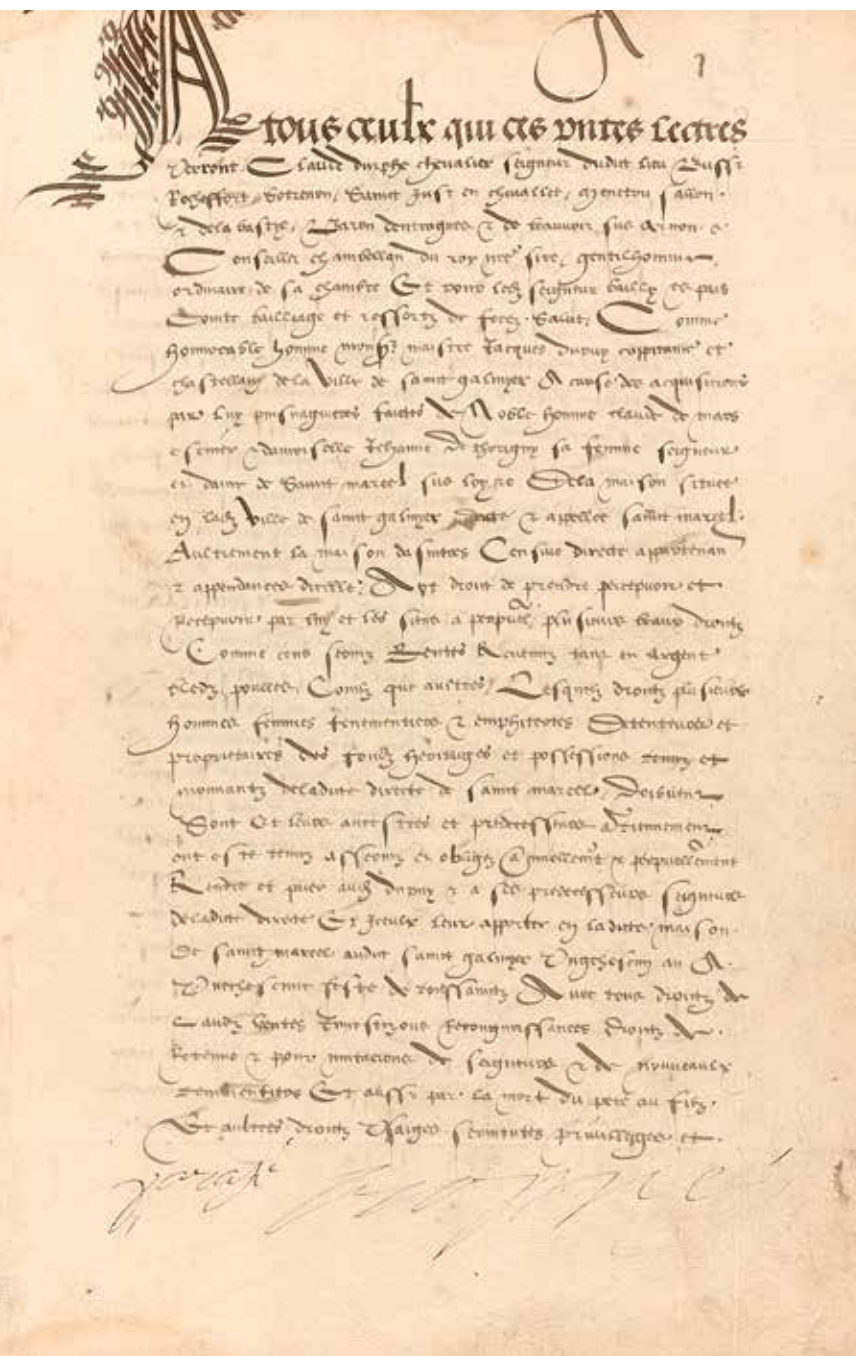 A
1
tous ceulx qui ces pntes lectres
Verront Claude durphe chevalier seigneur dudict lieu Bussi
Rocheffort, Sainct Just en chevallet, menetou sallon
& dela bastye, Baron & de beauvoir sus arnon &
Conseiller chambellan du roy nre sire, gentilhomme
ordinaire de sa chambre Et pour seigneur bailly es pais
Conte bailliage et ressortz de forez Salut, Comme
honnorable homme maistre Jacques dupuy cappitaine et
chastellain dela Ville de sainct galmyer A cause des acquisitions
par luy faictes de Noble homme claude de mars
& damoiselle Jehanne de thorigny sa femme seigneur
et dame de Sainct marcel sus loyre Dela maison situee
en Ville de sainct galmyer dicte & appellee sainct marcel
Aultrement la maison Censive directe appartenan
& appendances dicelle, Ayt droit de prendre percepvoir et
Recepvoir par luy et les siens a plusieurs beaux droictz
Comme cens tant en argent
bledz, poulles, que aultres, Lesquelz droictz plusieurs
hommes femmes & emphiteotes Detenteurs et
proprietaires des fondz heritaiges et possessions tenuz et
mouvantz deladicte directe de sainct marcel, Doibvent
Sont Et leurs ancestres et predecesseurs
ont este tenuz et obligez Annuellemt & perpetuellement
Rendre et paier dupuy & a ses predecesseurs seigneurs
deladicte directe Et Iceulx leur apporter en ladicte maison
De sainct marcel audict sainct galmyer Ung chescun an A
Une chescune feste de toussainctz Avec tous droictz de
Laudz Ventes Recongnoissances droictz de
Retenue & pour mutacions de seigneurs & de nouveaulx
Et aussi par la mort du pere au filz
Et aultres droictz Usaiges servitutes privilieges et